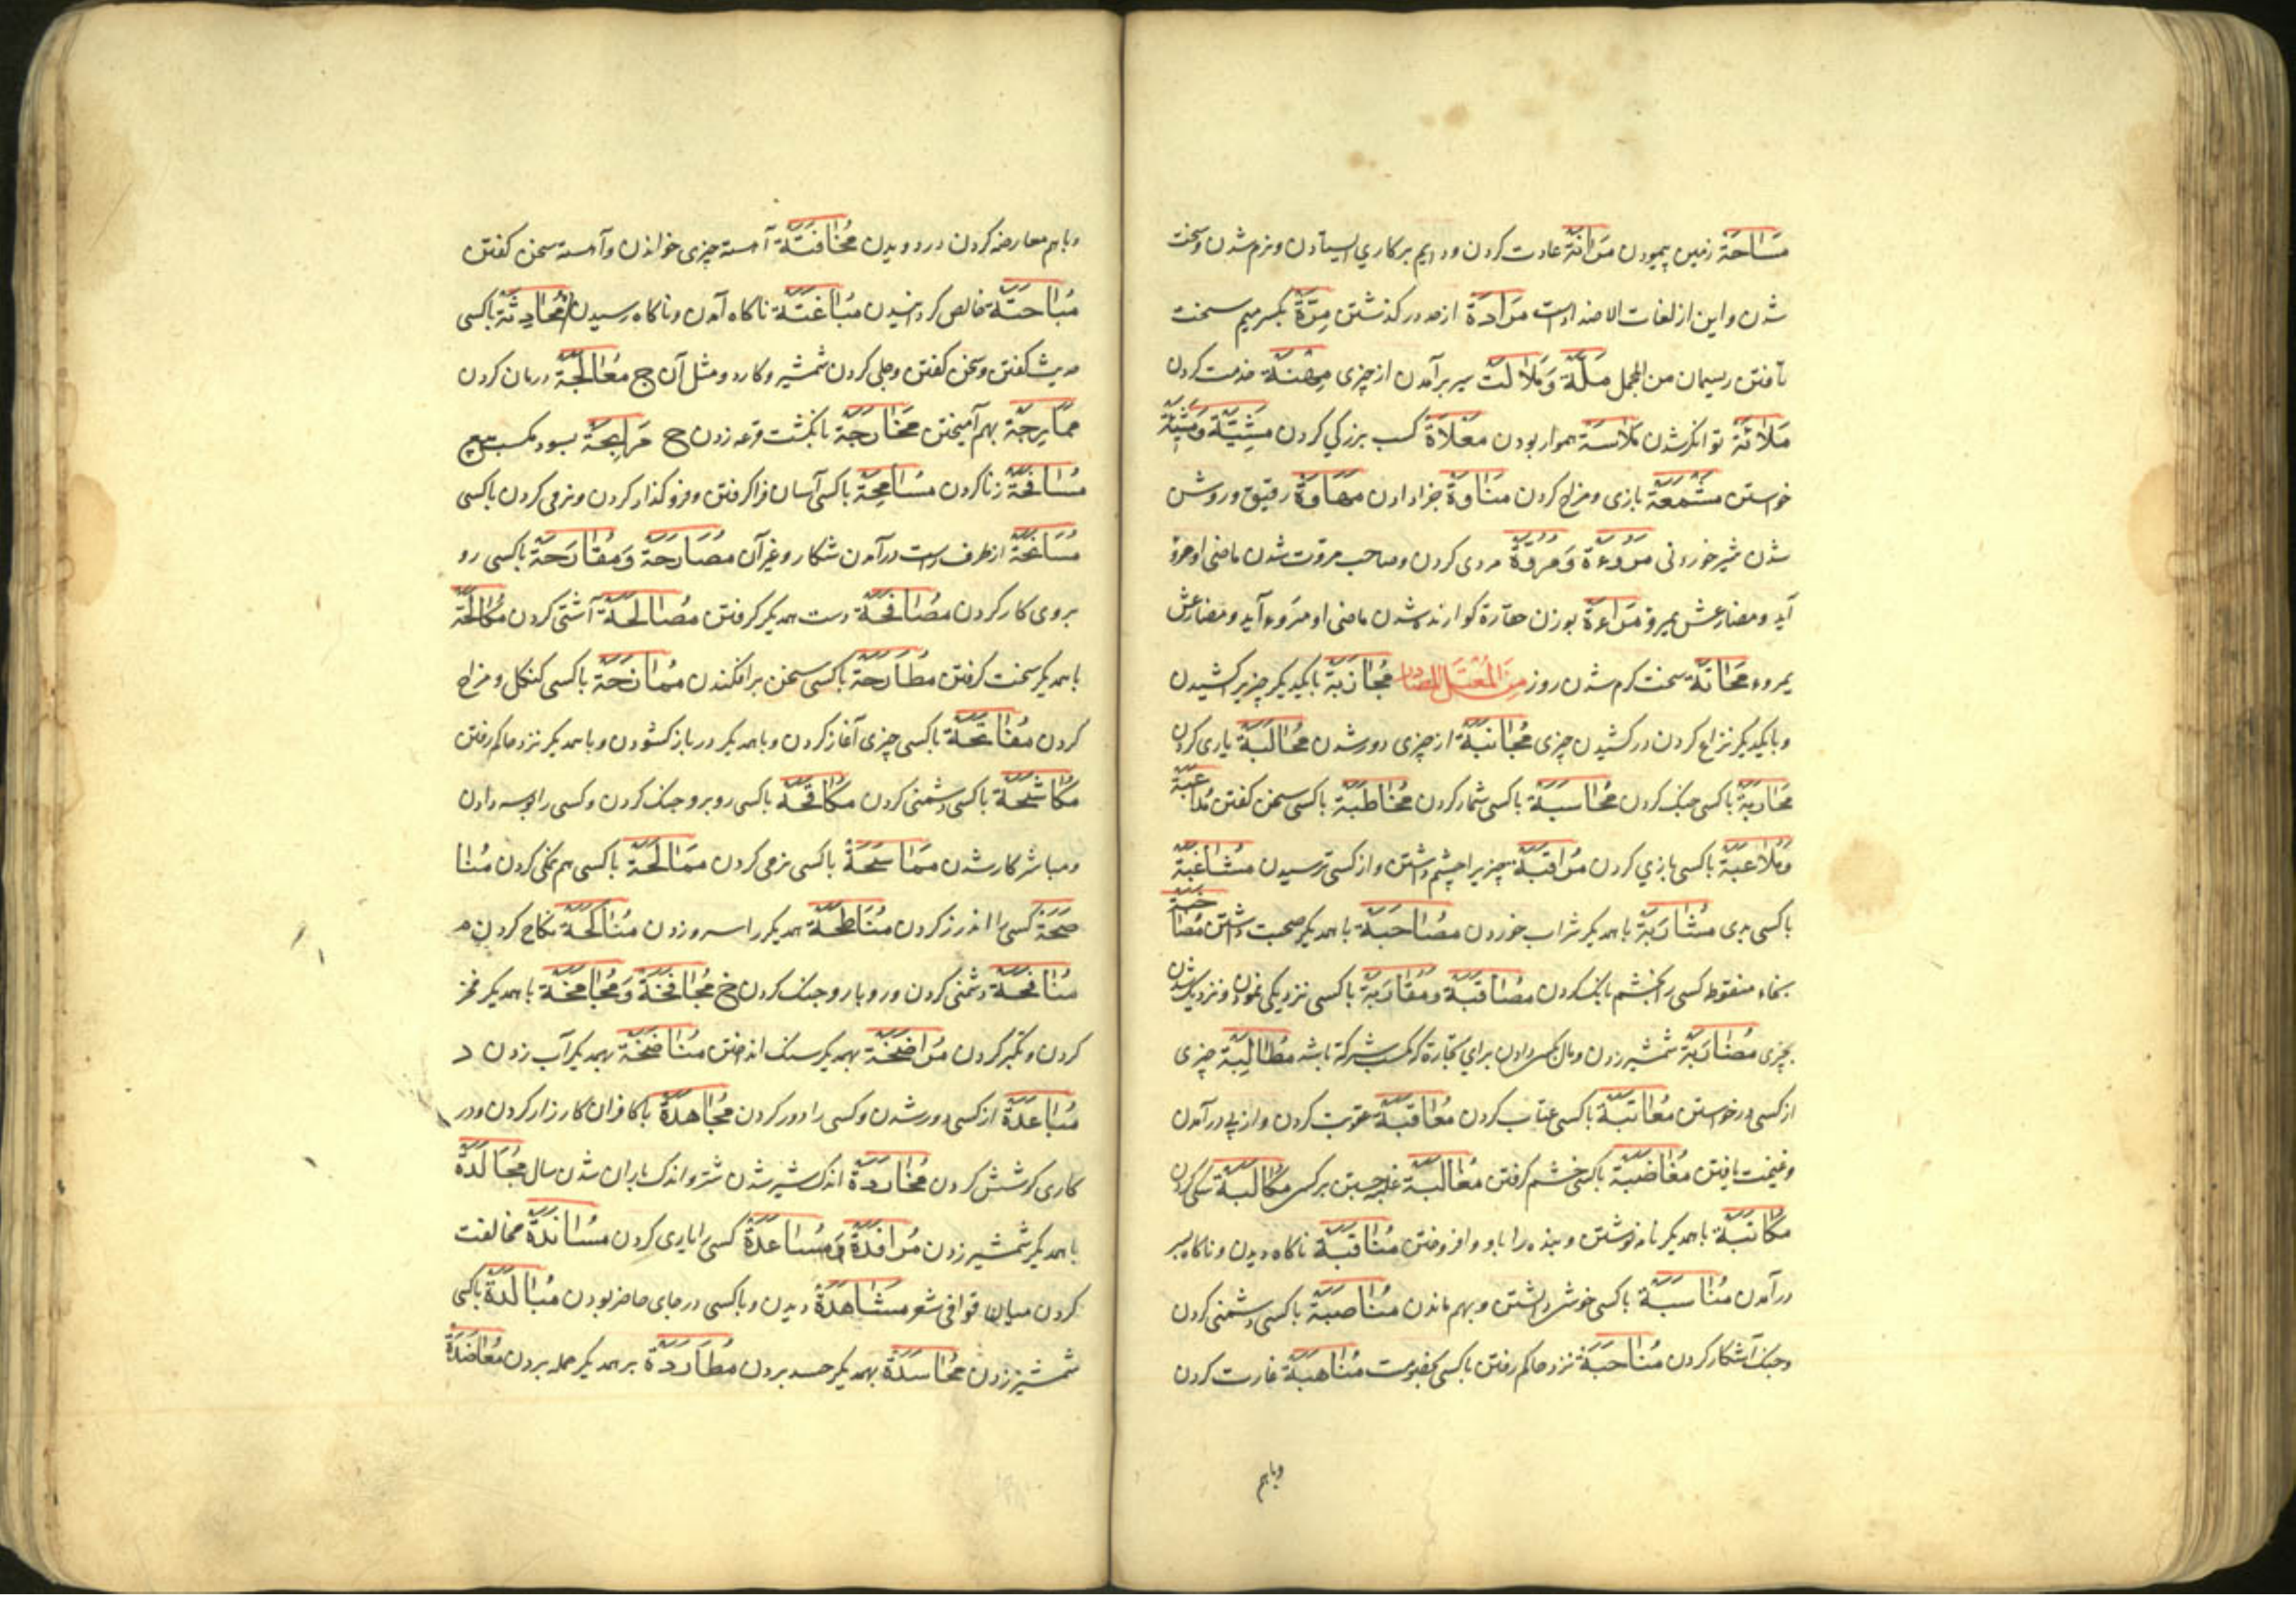 مَسَاحَة زمین پیمودن مَرَانَة عادت کردن و دایم بر کاری ایستادن و نرم شدن و سخت
شدن و این از لغات الاضداد است مَرَادَة از حد در کذشتن مِرَّة بکسر میم سخت
تافتن ریسمان من المجمل مَلَّة وَمَلَالَت سیر برآمدن از چیزی مِهْنَة خدمت کردن
مَلَائَة توانکر شدن مَلَاسَة هموار بودن مَعْلَاة کسب بزرکی کردن
خواستن مَشْمَعَة بازی و مزاح کردن مَنَاوَة جزا دادن مَهَاوَة رقیق و روشن
شدن شیر خوردنی مُرُوءَة وَمُرُوَّة مردی کردن و صاحب مروت شدن ماضی او مرؤ
آید و مضارعش یمرؤ مَرَاءَة بوزن حقارة کوارنده شدن ماضی او مَرُوء آید و مضارعش
یمروء مَحَاتَة سخت کرم شدن روز مُجَاذَبَة با یکدیکر چیزی را کشیدن
و با یکدیکر نزاع کردن در کشیدن چیزی مُجَانَبَة از چیزی دور شدن مُحَالَبَة یاری کردن
مُحَارَبَة با کسی جنک کردن مُحَاسَبَة با کسی شمار کردن مُخَاطَبَة با کسی سخن کفتن مُدَاعَبَة
وَمُلَاعَبَة با کسی بازی کردن مُرَاقَبَة چیزیرا چشم داشتن و از کسی ترسیدن مُشَاغَبَة
با کسی بدی مُشَارَبَة با همدیکر شراب خوردن مُصَاحَبَة با همدیکر صحبت داشتن
بخاء منقوط کسی را بخشم بانک کردن مُصَاقَبَة و مُقَارَبَة با کسی نزدیکی نمودن و نزدیک شدن
بچیزی مُضَارَبَة شمشیر زدن و مال بکسی دادن برای تجارة که مکسب شرکة باشد مُطَالَبَة چیزی
از کسی درخواستن مُعَاتَبَة با کسی عتاب کردن مُعَاقَبَة عقوبت کردن و از پی درآمدن
و غنیمت یافتن مُغَاضَبَة با کسی خشم کرفتن مُغَالَبَة غلبه جستن بر کسی مُكَالَبَة سکی کردن
مُكَاتَبَة با همدیکر نامه نوشتن و بنده را باو وا فروختن مُنَاقَبَة ناکاه دیدن و ناکاه بسر
درآمدن مُنَاسَبَة با کسی خویشی داشتن و بهم ماندن مُنَاصَبَة با کسی دشمنی کردن
و جنک آشکار کردن مُنَاحَبَة نزد حاکم رفتن با کسی بخصومت مُنَاهَبَة غارت کردن
وباهم
و باهم معارضه کردن در دویدن مُخَافَتَة آهسته چیزی خواندن و آهسته سخن کفتن
مُبَاحَتَة خالص کردانیدن مُبَاغَتَة ناکاه آمدن و ناکاه رسیدن مُحَادِثَة باکسی
حدیث کفتن و سخن کفتن و جلی کردن شمشیر و کارد و مثل آن ج مُعَالَجَة درمان کردن
مُمَازَجَة بهم آمیختن مُخَارَجَة بانکشت قرعه زدن ح مُرَابَحَة بسود
مُسَافَحَة زنا کردن مُسَامَحَة با کسی آسان فرا کرفتن و فرو کذار کردن و نرمی کردن باکسی
مُسَانَحَة از طرف راست درآمدن شکار و غیر آن مُصَارَحَة وَمُقَارَحَة باکسی رو
بروی کار کردن مُصَافَحَة دست همدیکر کرفتن مُصَالَحَة آشتی کردن مُكَالَحَة
با همدیکر سخت کرفتن مُطَارَحَة با کسی سخن برافکندن مُمَازَحَة باکسی کنکل و مزاح
کردن مُفَاتَحَة با کسی چیزی آغاز کردن و با همدیکر در باز کشودن و با همدیکر نزد حاکم رفتن
مُكَاشَحَة با کسی دشمنی کردن مُكَافَحَة با کسی روبرو جنک کردن و کسی را بوسه دادن
و مباشر کار شدن مُمَاسَحَة با کسی نرمی کردن مُمَالَحَة با کسی هم نمکی کردن مُنَا
صَحَة کسی را اندرز کردن مُنَاطَحَة همدیکر را سرو زدن مُنَاكَحَة نکاح کردن
مُنَافَحَة دشمنی کردن و رو بارو جنک کردن خ مُجَافَخَة وَمُجَامَخَة با همدیکر فخر
کردن و تکبر کردن مُرَاضَخَة بهمدیکر سنک انداختن مُنَاضَخَة بهمدیکر آب زدن د
مُبَاعَدَة از کسی دور شدن و کسی را دور کردن مُجَاهَدَة با کافران کارزار کردن و در
کاری کوشش کردن مُحَارَدَة اندک شیر شدن شتر و اندک باران شدن سال مُجَالَدَة
با همدیکر شمشیر زدن مُرَافَدَة وَمُسَاعَدَة کسی را یاری کردن مُسَانَدَة مخالفت
کردن میان قوافی شعر مُشَاهَدَة دیدن و با کسی در جای حاضر بودن مُبَالَدَة باکسی
شمشیر زدن مُحَاسَدَة بهمدیکر حسد بردن مُطَارَدَة بر همدیکر حمله بردن مُعَاضَدَة